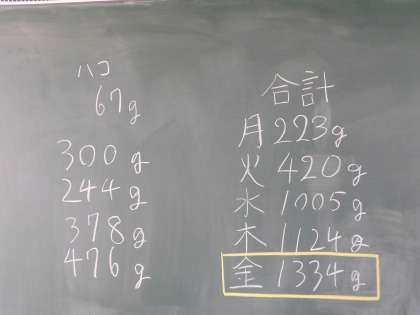 ハコ
67g
300g
244g
378g
476g
合計
月223g
火420g
水1005g
木1124g
金1334g